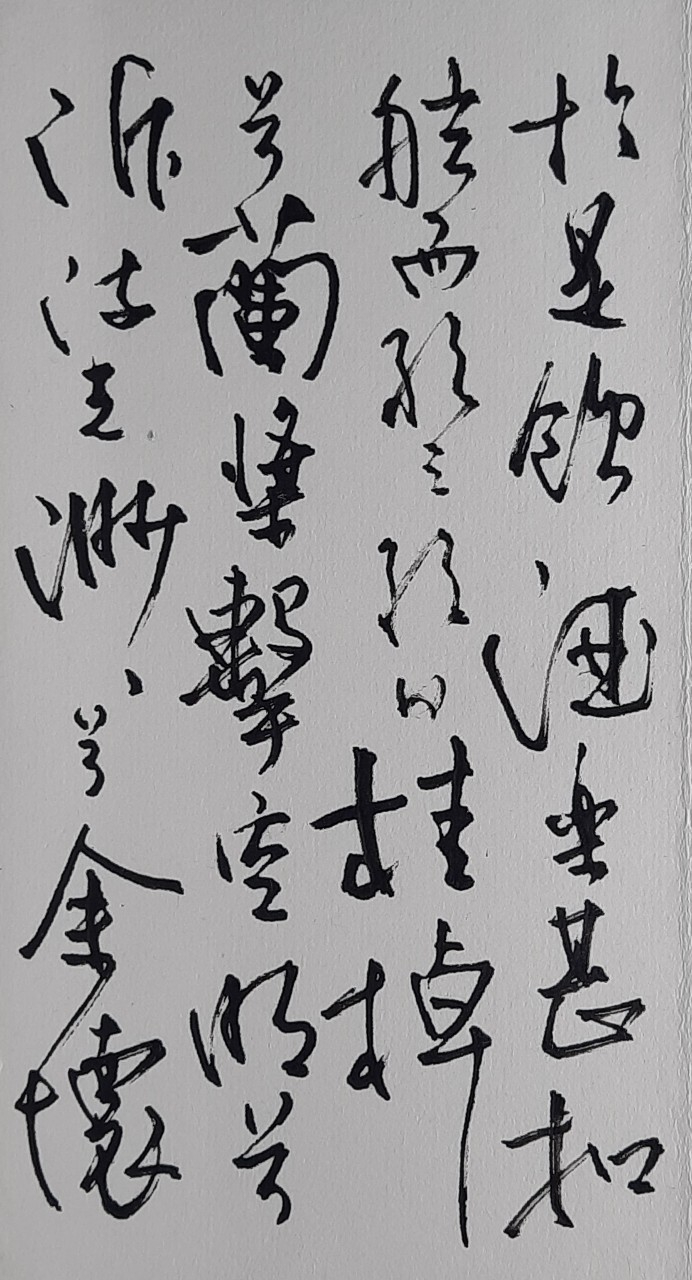 於是飲酒樂甚扣
舷而歌之歌曰桂棹
兮蘭槳擊空明兮
泝流光渺渺兮余懷